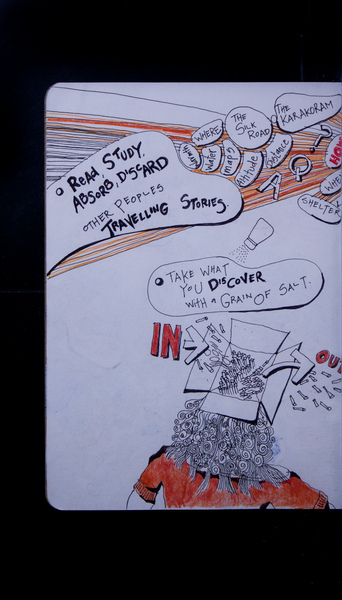 THE
KARAKORAM
THE
SILK
ROAD
WHERE
water
maps
Altitude
Distance
FAQ's
HO
WHE
SHELTER
Read, STUDY,
ABSORB, DISCARD
OTHER PEOPLES
TRAVELLING STORIES.
TAKE WHAT
YOU DISCOVER
WITH A GRAIN OF SALT.
IN
OU